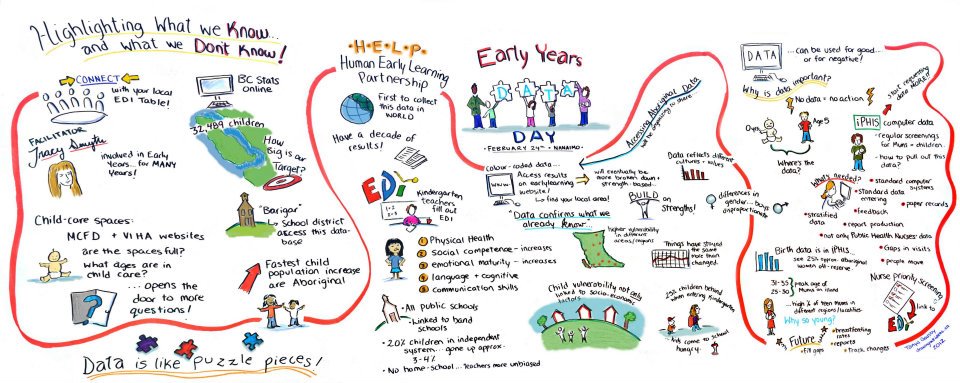 Highlighting What we Know...
and what we Don't Know!
CONNECT
with your local
EDI Table!
BC Stats
online
32,489 children
How
Big is our
Target?
FACILITATOR
Tracy Smyth
involved in Early
Years... for MANY
Years!
"Barigar"
↳ School district
access this data-
base
Child-care spaces:
MCFD + VIHA websites
are the spaces full?
What ages are in
child care?
...opens
the door to more
questions!
Fastest child
population increase
are Aboriginal
Data is like puzzle pieces!
H.E.L.P.
Human Early Learning
Partnership
First to collect
this data in
WORLD
Have a decade of
results!
EDI
Kindergarten
teachers
fill out
EDI
1 Physical Health
2 Social competence - increases
3 emotional maturity - increases
4 language + cognitive
5 communication skills
All public schools
Linked to band
schools
20% children in independent
system... gone up approx.
3-4%
No home-school... teachers more unbiased
Early Years
DATA
DAY
FEBRUARY 24th • NANAIMO
Colour-coded data...
www
Access results
on earlylearning
website!
↳ find your local area!
"Data confirms what we
already know...
higher vulnerability
in different
areas/regions
Child vulnerability not only
linked to socio-economic
factors
Accessing Aboriginal Data
will eventually be
more broken down +
strength-based...
BUILD
on
Strengths!
Data reflects different
cultures + values
differences in
gender... boys
disproportionate
Things have stayed the same
more than
changed.
25% children behind
when entering Kindergarten
kids come to school
hungry
DATA
...can be used for good...
or for negative?
Why is data important?
No data = no action
0yrs
Age 5
Where's the
data?
start requesting
data MORE!!
iPHIS
computer data
- regular screenings
for Mums + children.
- how to pull out this
data?
What's needed?
• standard computer
systems
• standard data
entering
• paper records
• feedback
stratified
data
• report production
• not only Public Health Nurses' data
Birth data is in iPHIS
see 25% approx. aboriginal
women off-reserve
• Gaps in visits
• people move
31-35
25-30
peak age of
Mums on island
...high % of teen Mums in
different regions/localities
Why so young?
Future
• breastfeeding
rates
• reports
• Fill gaps
• Track changes
Nurse Priority screening
link to
EDI
2012